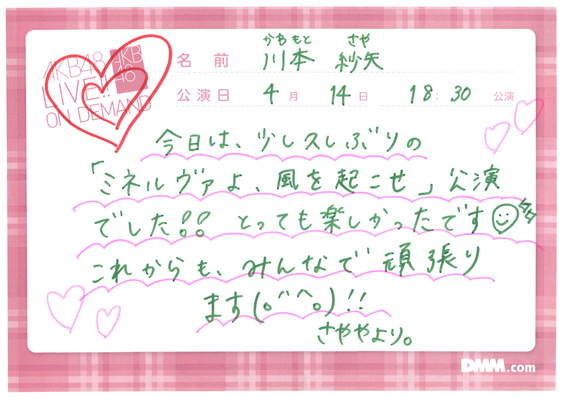 AKB48
LIVE!!
ON DEMAND
AKB
48
かわもと さや
名前 川本 紗矢
公演日 4月 14日 18:30 公演
今日は、少し久しぶりの
「ミネルヴァよ、風を起こせ」公演
でした!! とっても楽しかったです
これからも、みんなで頑張り
ます(。^^。)!!
さややより。
DMM.com